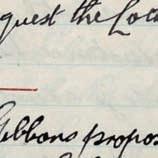 quest the Loc
Gibbons propos